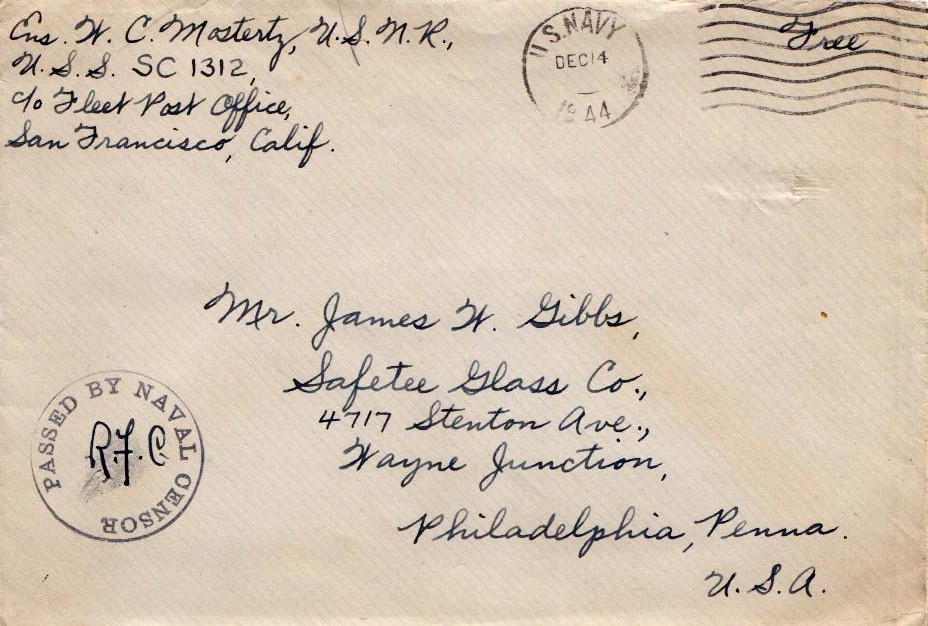 Ens. W. C. Mostertz, U.S.N.R.,
U.S.S. SC 1312,
c/o Fleet Post Office,
San Francisco, Calif.
U.S. NAVY
DEC 14
1944
Free
Mr. James W. Gibbs,
Safetee Glass Co.,
4717 Stenton Ave.,
Wayne Junction,
Philadelphia, Penna.
U.S.A.
PASSED BY NAVAL CENSOR
R.F.C